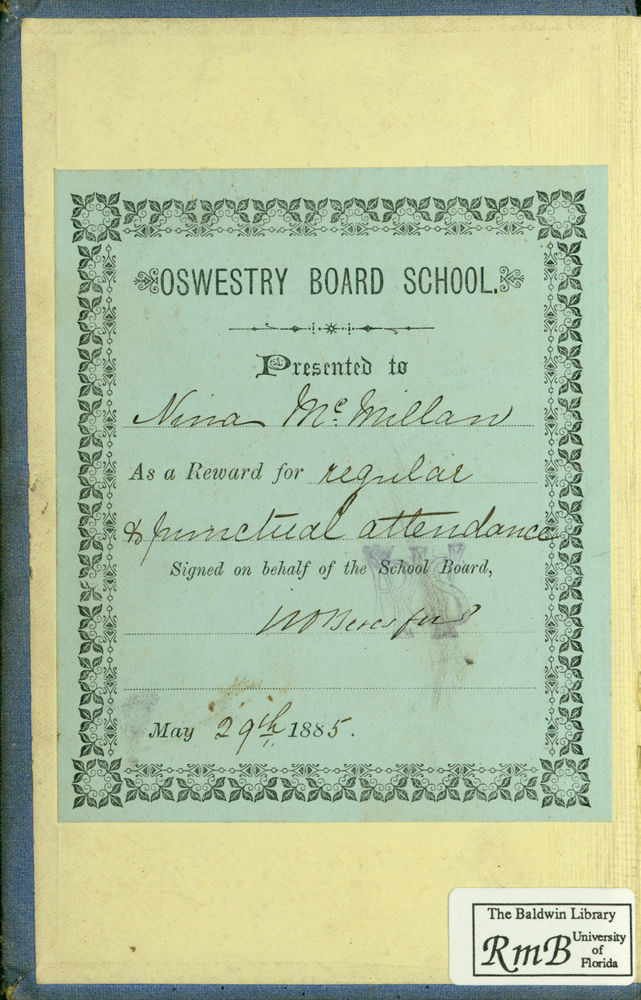 OSWESTRY BOARD SCHOOL.
Presented to
Nina Mc. Millan
As a Reward for regular
& punctual attendance
Signed on behalf of the School Board,
May 29th 1885.
The Baldwin Library
RmB University
of
Florida